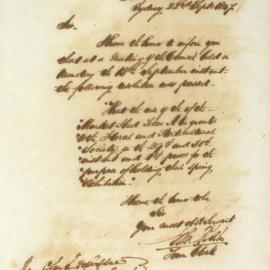 Sydney 22nd Sept 1847
Sir
I have the honor to inform you
that at a Meeting of the Council held on
Monday the 15th September instant
the following resolution was passed
"That the use of the
Market Shed Letter A be granted
to the Floral and Horticultural
Society for the 29th and 30th
instant and 1st prox for the
purpose of holding their Spring
Exhibition"
I have the honor to be
Sir
Your most obt Servant
Town Clerk